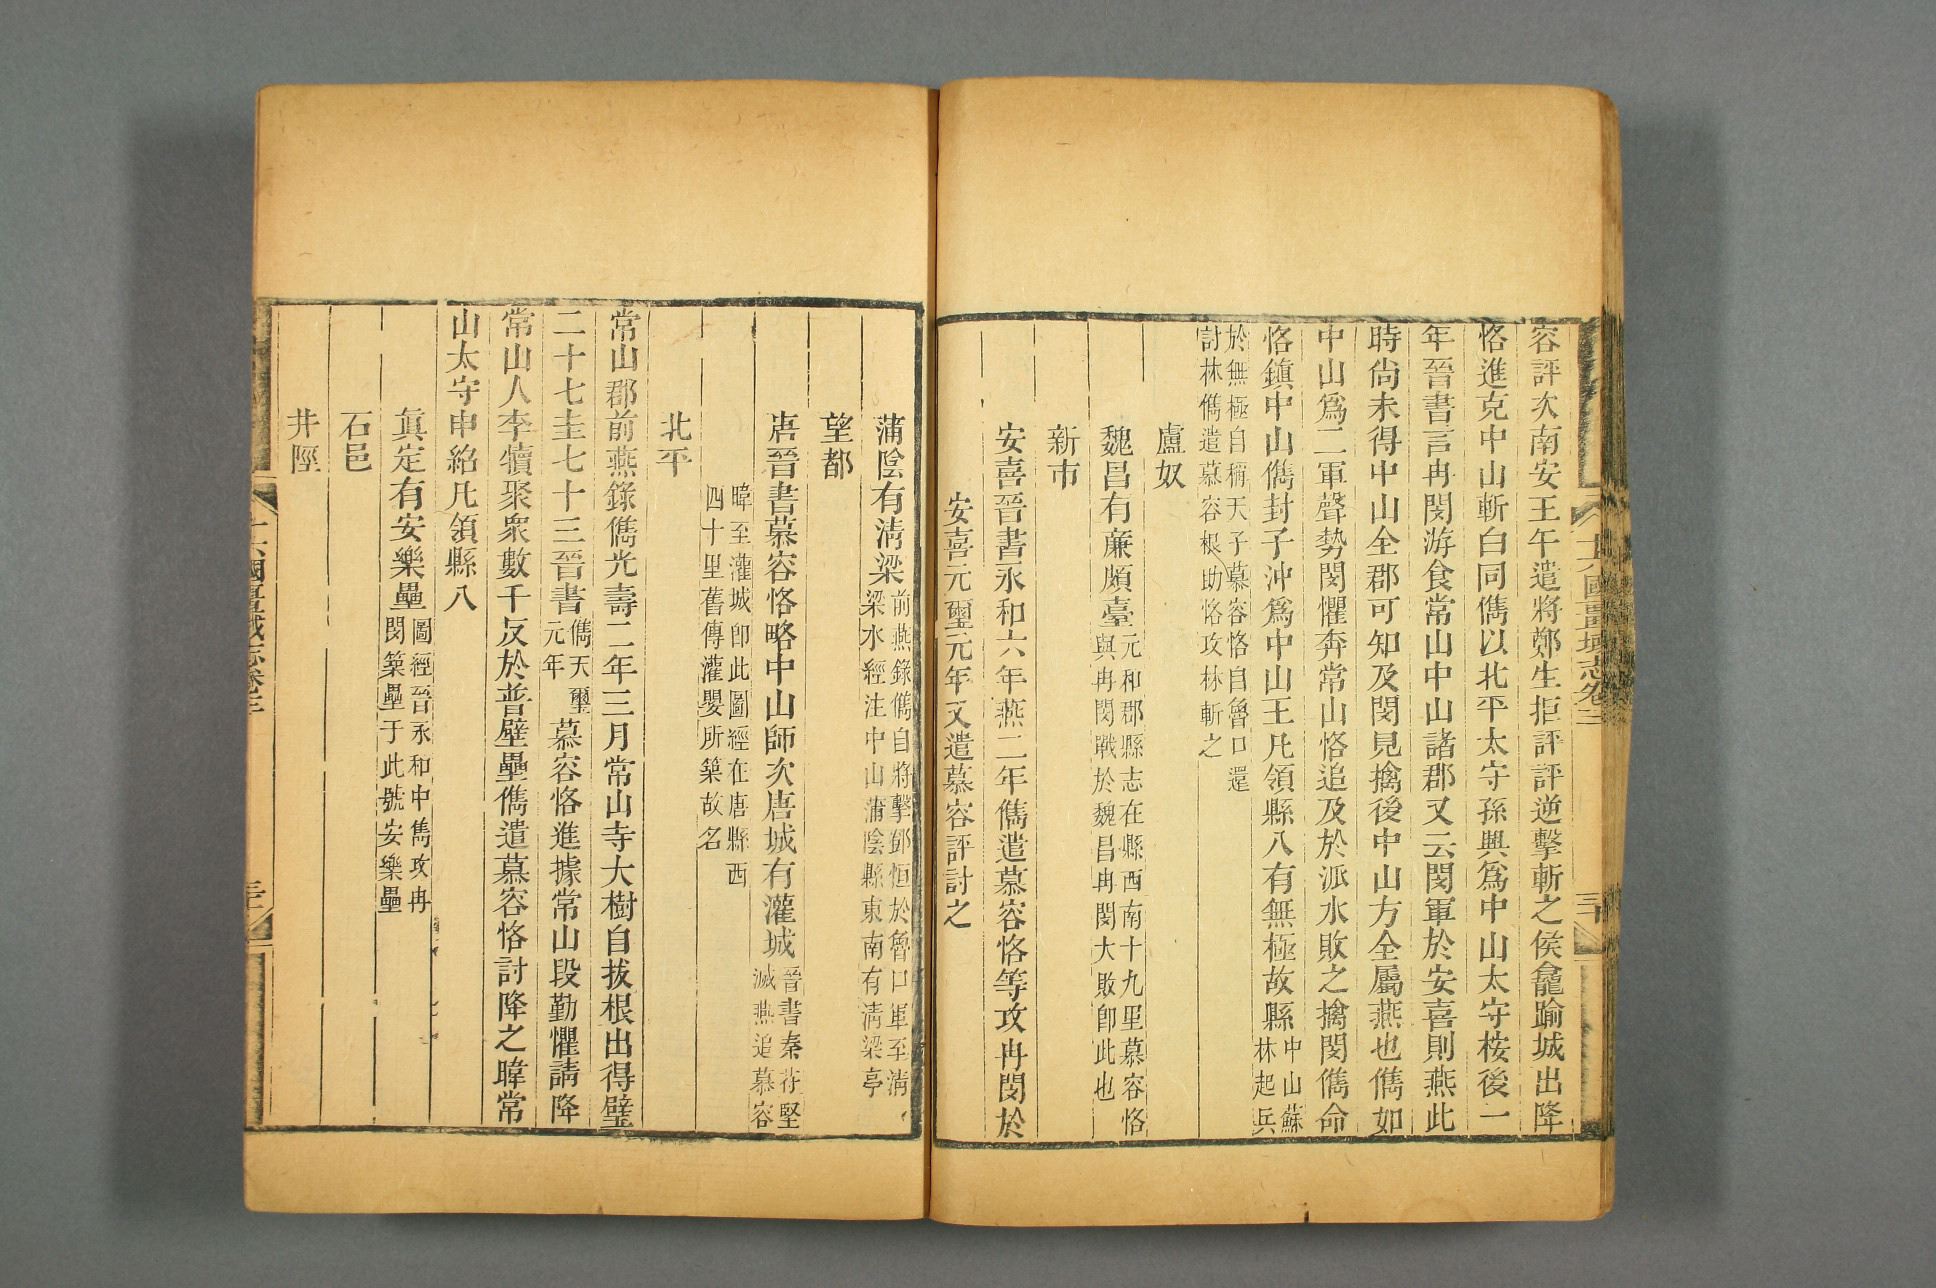 容評次南安王午遣將鄭生拒評評逆擊斬之侯龕踰城出降
恪進克中山斬白同儁以北平太守孫興爲中山太守桉後一
年晉書言冉閔游食常山中山諸郡又云閔軍於安喜則燕此
時尙未得中山全郡可知及閔見擒後中山方全屬燕也儁如
中山爲二軍聲勢閔懼奔常山恪追及於派水敗之擒閔儁命
恪鎭中山儁封子沖爲中山王凡領縣八有無極故縣
中山蘇
林起兵
於無極自稱天子慕容恪自魯口還
討林儁遣慕容根助恪攻林斬之
盧奴
魏昌有廉頗臺
元和郡縣志在縣西南十九里慕容恪
與冉閔戰於魏昌冉閔大敗卽此也
新市
安喜晉書永和六年燕二年儁遣慕容恪等攻冉閔於
安喜元璽元年又遣慕容評討之
十六國疆域志卷三
三十
蒲陰有淸梁
前燕錄儁自將擊鄧恒於魯口軍至淸
梁水經注中山蒲陰縣東南有淸梁亭
望都
唐晉書慕容恪略中山師次唐城有灌城
晉書秦苻堅
滅燕追慕容
暐至灌城卽此圖經在唐縣西
四十里舊傳灌嬰所築故名
北平
常山郡前燕錄儁光壽二年三月常山寺大樹自拔根出得璧
二十七圭七十三晉書
儁天璽
元年
慕容恪進據常山段勤懼請降
常山人李犢聚衆數千反於普壁壘儁遣慕容恪討降之暐常
山太守申紹凡領縣八
眞定有安樂壘
圖經晉永和中雋攻冉
閔築壘于此號安樂壘
石邑
井陘
十六國疆域志卷三